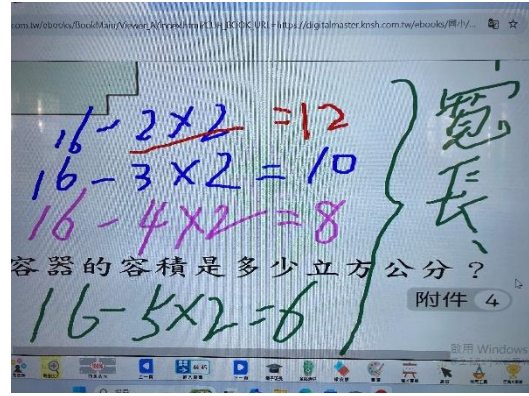 com.tw/ebooks/BookMain/Viewer_A/index.html?CLB_BOOK_URL=https://digitalmaster.knsh.com.tw/ebooks/國小/...
16-2×2=12
16-3×2=10
16-4×2=8
寬、長、
容器的容積是多少立方公分？
附件 4
16-5×2=6
啟用 Windows